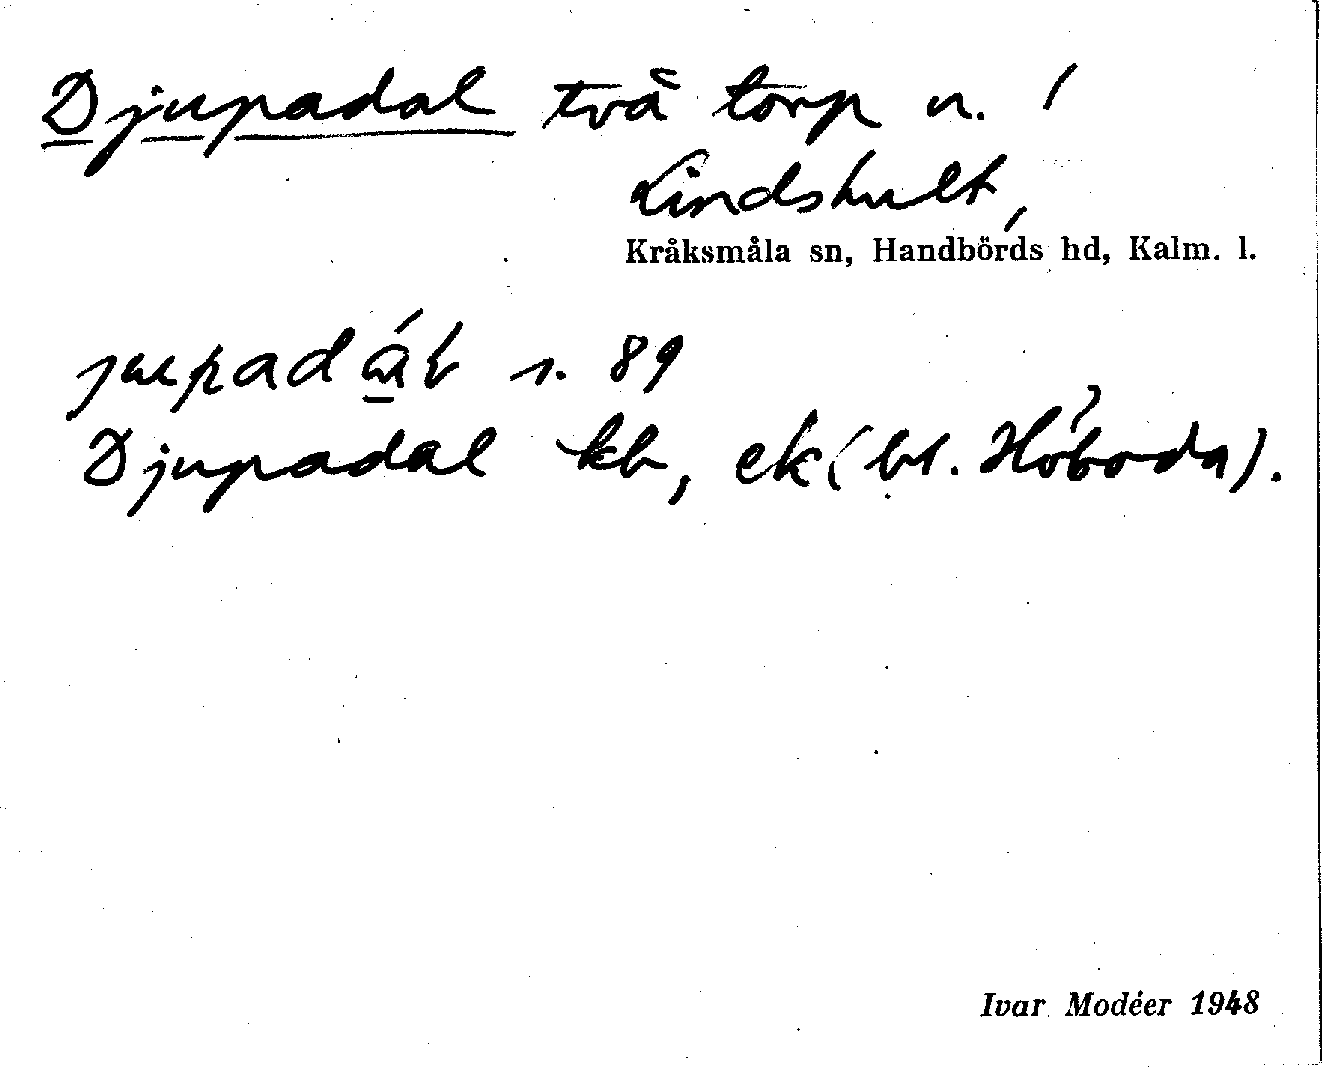 Djupadal två torp u. /
Lindshult,
Kråksmåla sn, Handbörds hd, Kalm. l.
s. 89
Djupadal kb, ek (bl. Höboda).
Ivar Modéer 1948